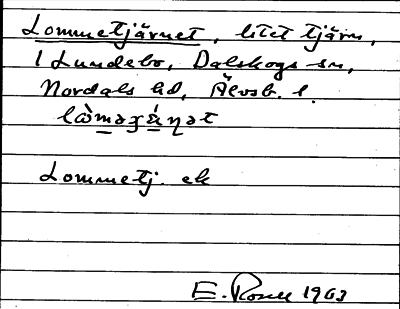 Lommetjärnet, litet tjärn,
i Lundebo, Dalskogs sn,
Nordals hd, Älvsb. l.
Lommetj. ek
E. 1963